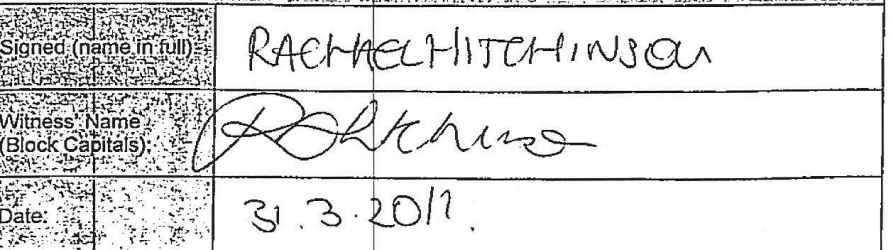 Signed (name in full):
RACHAEL HITCHINSON
Witness' Name
(Block Capitals):
Date:
31.3.2011.